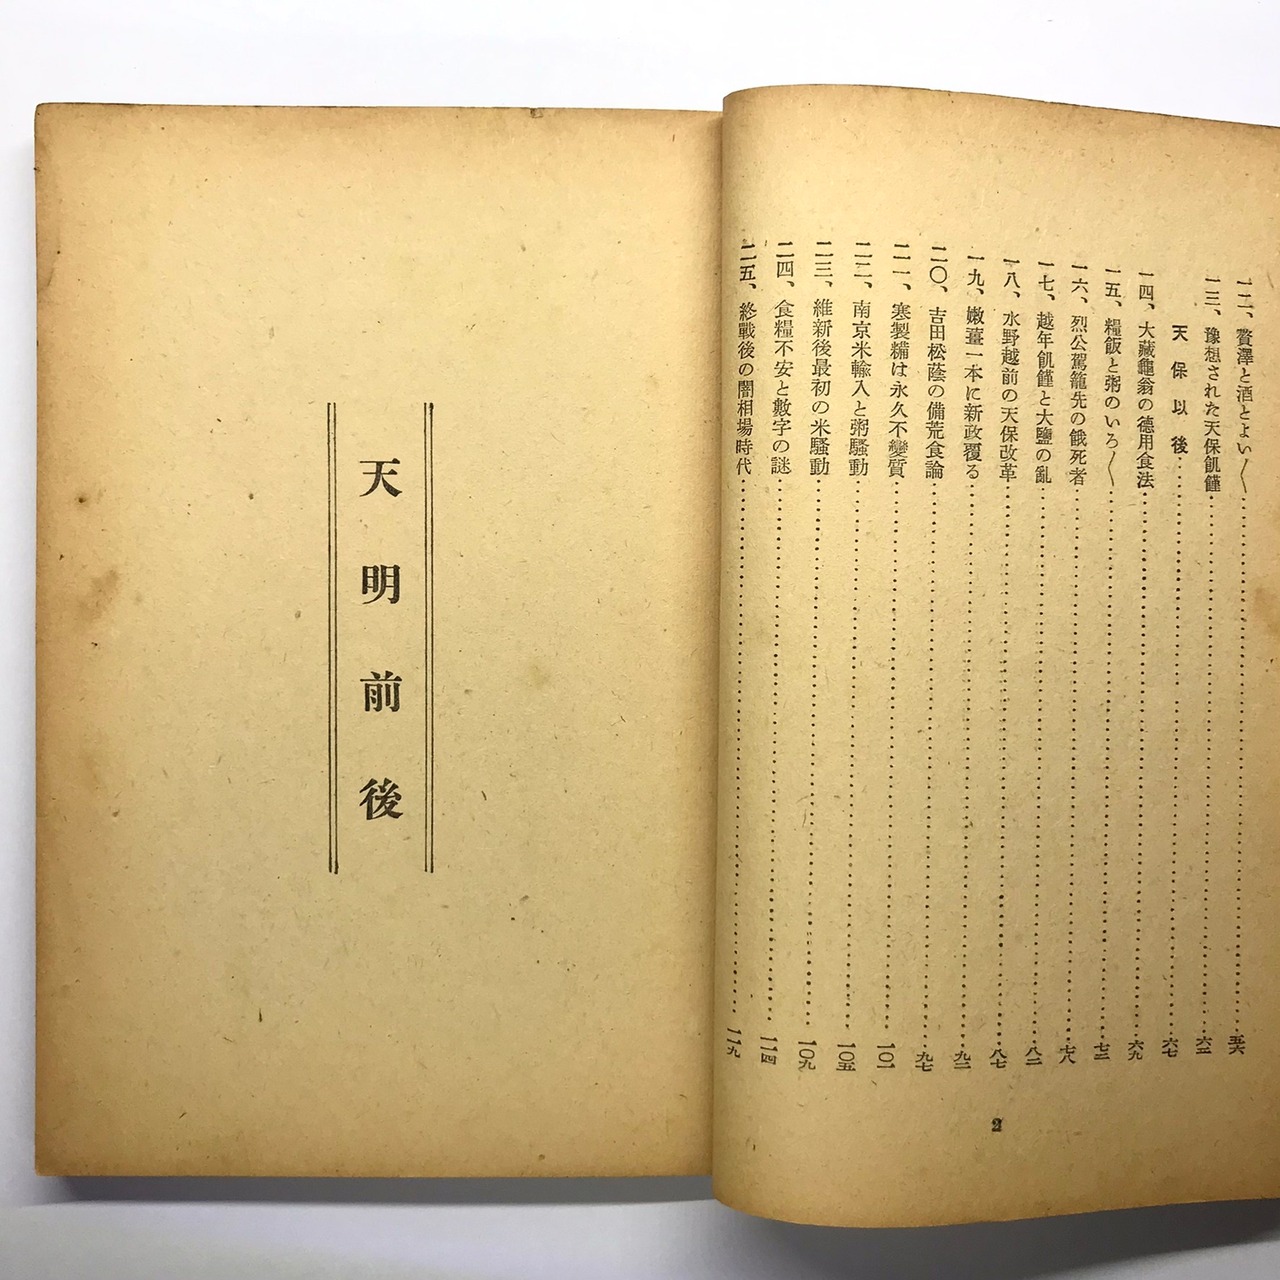 一二、贅澤と酒とよい〱……五六
一三、豫想された天保飢饉……六三
天保以後……六七
一四、大藏龜翁の德用食法……六九
一五、糧飯と粥のいろ〱……七三
一六、烈公駕籠先の餓死者……七八
一七、越年飢饉と大鹽の亂……八二
一八、水野越前の天保改革……八七
一九、嫩薑一本に新政覆る……九二
二〇、吉田松蔭の備荒食論……九七
二一、寒製糒は永久不變質……一〇一
二二、南京米輸入と粥騷動……一〇五
二三、維新後最初の米騷動……一〇九
二四、食糧不安と數字の謎……一一四
二五、終戰後の闇相場時代……一一九
2
天明前後